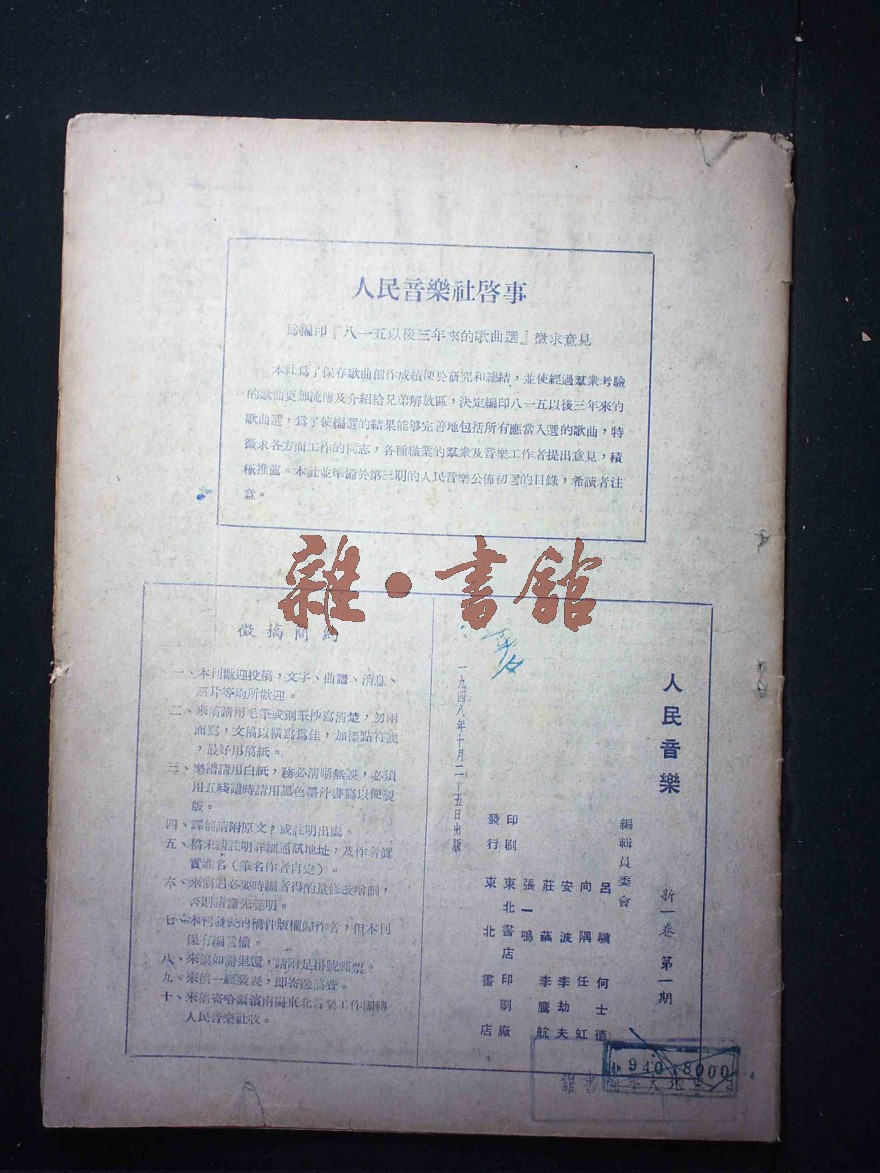 人民音樂社啓事
爲編印『八一五以後三年來的歌曲選』徵求意見
本社爲了保存歌曲創作成績便於研究和總結，並使經過羣衆考驗
的歌曲更加流傳及介紹給兄弟解放區，決定編印八一五以後三年來的
歌曲選，爲了使編選的結果能够完善地包括所有應當入選的歌曲，特
徵求各方面工作的同志，各種職業的羣衆及音樂工作者提出意見，積
極推薦。本社並準備於第三期的人民音樂公佈初選的目錄，希讀者注
意。
雜·書館
徵稿簡約
一、本刊歡迎投稿，文字、曲譜、消息、
照片等均所歡迎。
二、來稿請用毛筆或鋼筆抄寫清楚，勿兩
面寫，文稿以橫寫爲佳，加標點符號
，最好用稿紙。
三、樂譜請用白紙，務必清晰無誤，必須
用五綫譜時請用黑色墨汁書寫以便製
版。
四、譯稿請附原文，或註明出處。
五、稿末請註明詳細通訊地址，及作者眞
實姓名（筆名作者自定）。
六、來稿遇必要時編者得酌量修改增刪，
否則請預先聲明。
七、本刊發表的稿件版權歸作者，但本刊
保有編選權。
八、來稿如需退還，請附足掛號郵票。
九、來稿一經發表，即寄送稿費。
十、來稿寄哈爾濱南崗東北音樂工作團轉
人民音樂社收。
人民音樂 新一卷 第一期
編輯員委會
呂驥 何士德
向隅 任虹
安波 李劫夫
莊蔚 李鷹航
張一鳴
印刷 東北書店印刷廠
發行 東北書店
一九四八年十月二十五日出版
940 8000